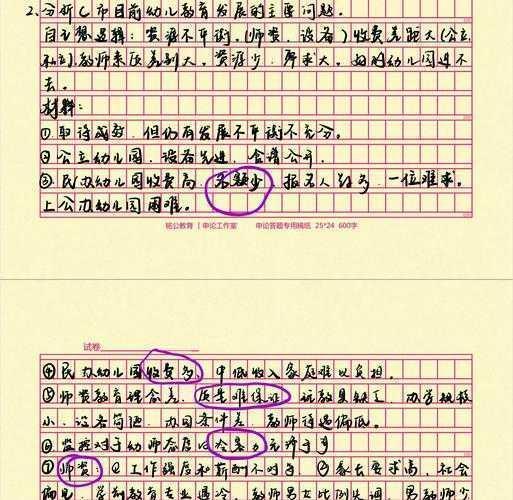 2、分析C市目前幼儿教育发展的主要问题。
自主想逻辑:资源不平衡。(师资、设备)收费差距大(公立
私),教师素质差别大。资源少,需求大。好的幼儿园进不
去。
材料:
①取得成效,但仍有发展不平衡不充分。
②公立幼儿园,设备先进,食谱公开。
③民办幼儿园收费高,名额少,报名人数多,一位难求。
上公办幼儿园困难。
铭公教育 | 申论工作室 申论答题专用稿纸 25*24 600字
试卷
④民办幼儿园收费多,中低收入家庭难以负担。
⑤师资教育理念差,质量难保证 玩教具缺乏,办学规模
小,设备简陋,办园条件差,教师待遇偏低。
⑥监控对于幼师态度
⑦师资:①工作强度和薪酬不对等 ②家长要求高,社会
偏见,学前教育专业遇冷,教师男女比例失调,男教师少